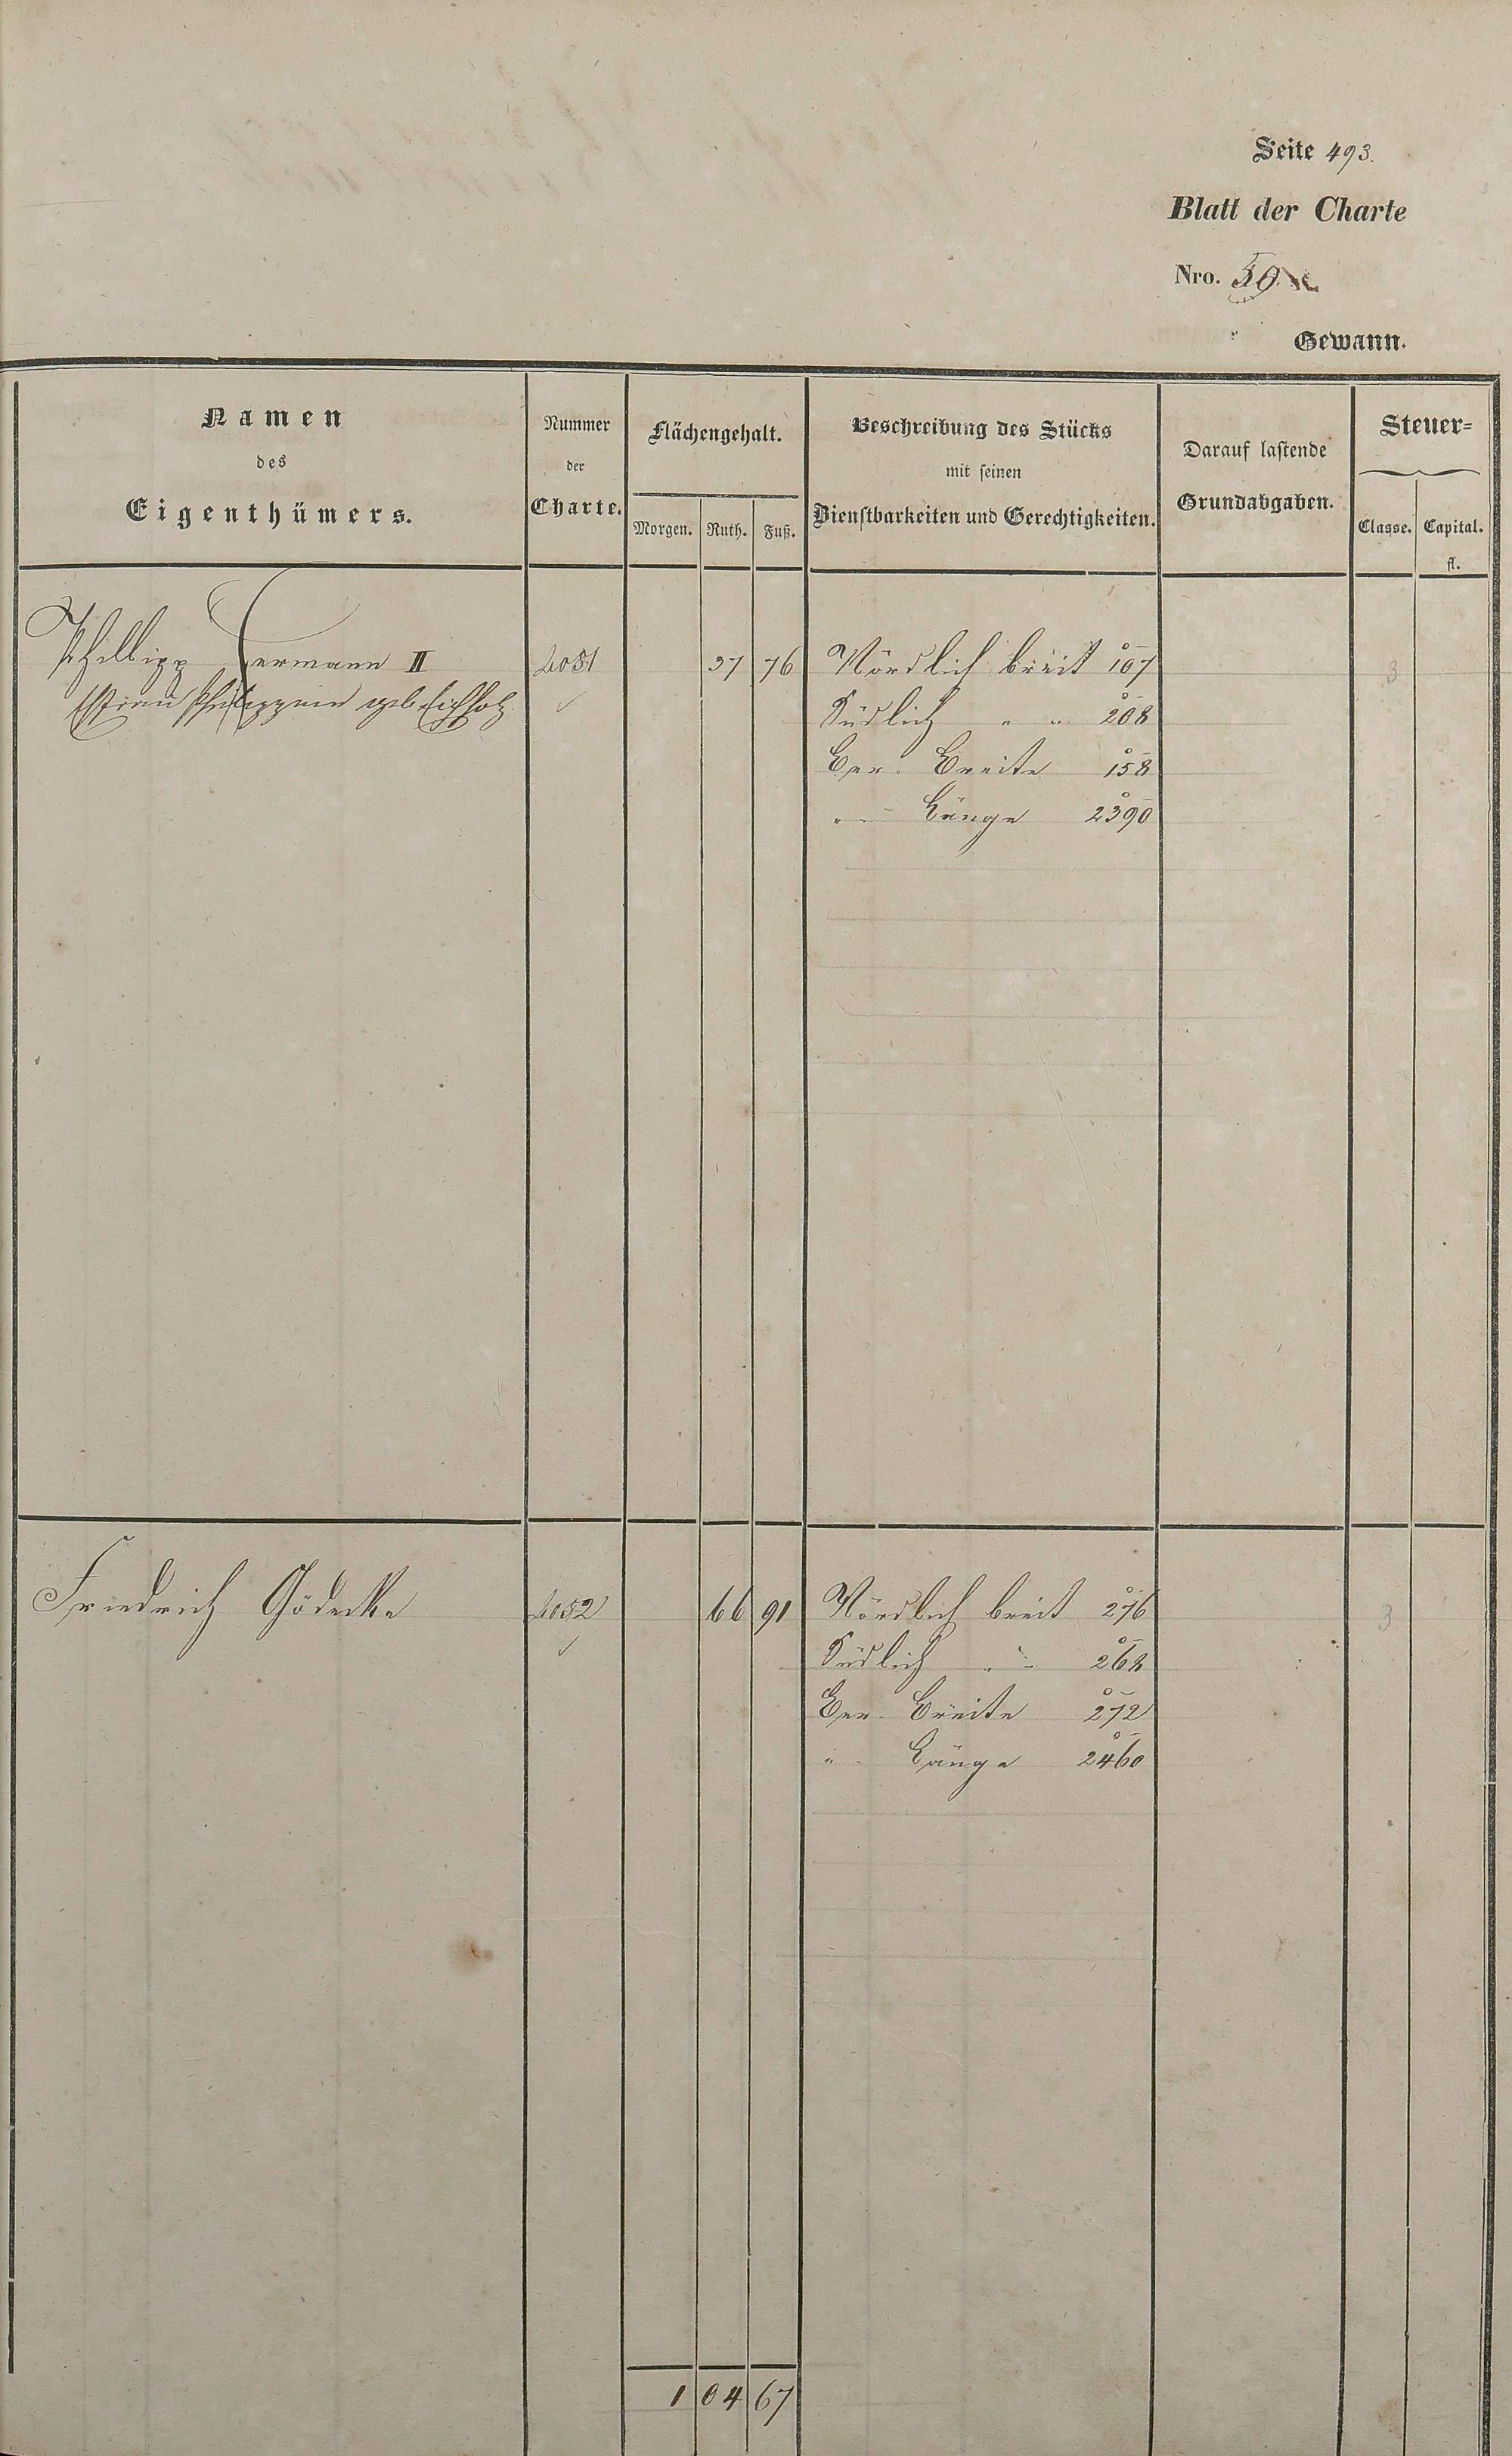 Seite 493.
Blatt der Charte
Nro. 50
Gewann.
Namen
des
Eigenthümers.
Nummer
der
Charte.
Flächengehalt.
Morgen. Ruth. Fuß.
Beschreibung des Stücks
mit seinen
Dienstbarkeiten und Gerechtigkeiten.
Darauf lastende
Grundabgaben.
Steuer=
Classe. Capital.
fl.
Phillipp Hermann II 4051 37 76 Nördlich breit 107 3
Ehefrau Philippine geb. Eichholz
Südlich " " 208
Ber. Breite 158
" Länge 2390
Friedrich Gödecke 4052 66 91 Nördlich breit 276 3
Südlich " " 268
Ber. Breite 272
" Länge 2460
1 04 67